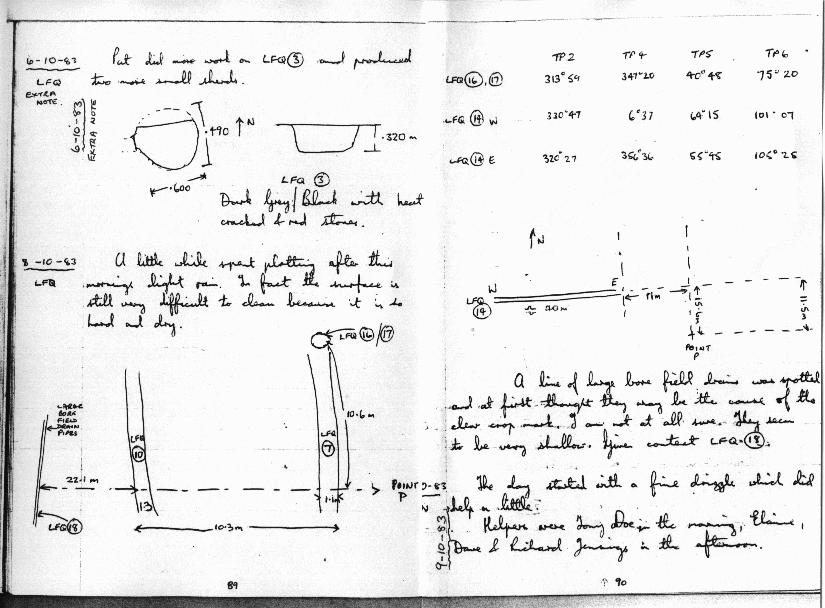 6-10-83 Pat did more work on LFQ ③ and produced
LFQ two more small sherds.
EXTRA
NOTE.
6-10-83
EXTRA NOTE
.490
N
.320 m
.600
LFQ ③
Dark Grey/Black with heat
cracked & red stones.
8-10-83 A little while spent plotting after this
LFQ mornings light rain. In fact the surface is
still very difficult to clean because it is so
hard and dry.
LFQ ⑯/⑰
LARGE
BORE
FIELD
DRAIN
PIPES
LFQ
⑩
LFQ
⑦
10.6 m
22.1 m
POINT
P
13
LFQ ⑱
10.3m
89
TP2 TP4 TP5 TP6
LFQ ⑯, ⑰ 313° 59 347° 20 40° 48 75° 20
LFQ ⑭ W 330° 47 6° 37 64° 15 101° 07
LFQ ⑭ E 320° 27 356° 36 55° 45 105° 25
N
W
E
LFQ
⑭
≈ 20m
11m
15.6m
11.5m
POINT
P
A line of large bore field drains was spotted
and at first thought they may be the cause of the
clear crop mark. I am not at all sure. They seem
to be very shallow. Given context LFQ ⑱.
The day started with a fine drizzle which did
help a little.
9-10-83
Helpers were Tony Doe in the morning, Elaine,
Dave & Richard Jennings in the afternoon.
↑ 90